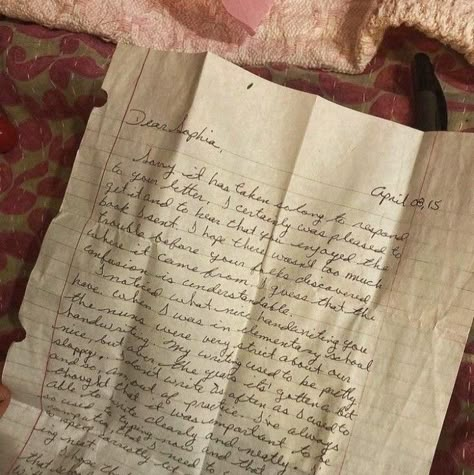 April 09, 15
Dear Sophia,
Sorry it has taken so long to respond
to your letter. I certainly was pleased to
get it and to hear that you enjoyed the
book I sent. I hope there wasn't too much
trouble before your folks discovered
where it came from. I guess that the
confusion is understandable.
I noticed what nice handwriting you
have. When I was in elementary school
the nuns were very strict about our
handwriting. My writing used to be pretty
nice, but over the years its gotten a bit
sloppy. I don't write as often as I used to
and so, am out of practice. I've always
thought that it was important to be
able to write clearly and neatly.
so much is typing now and that